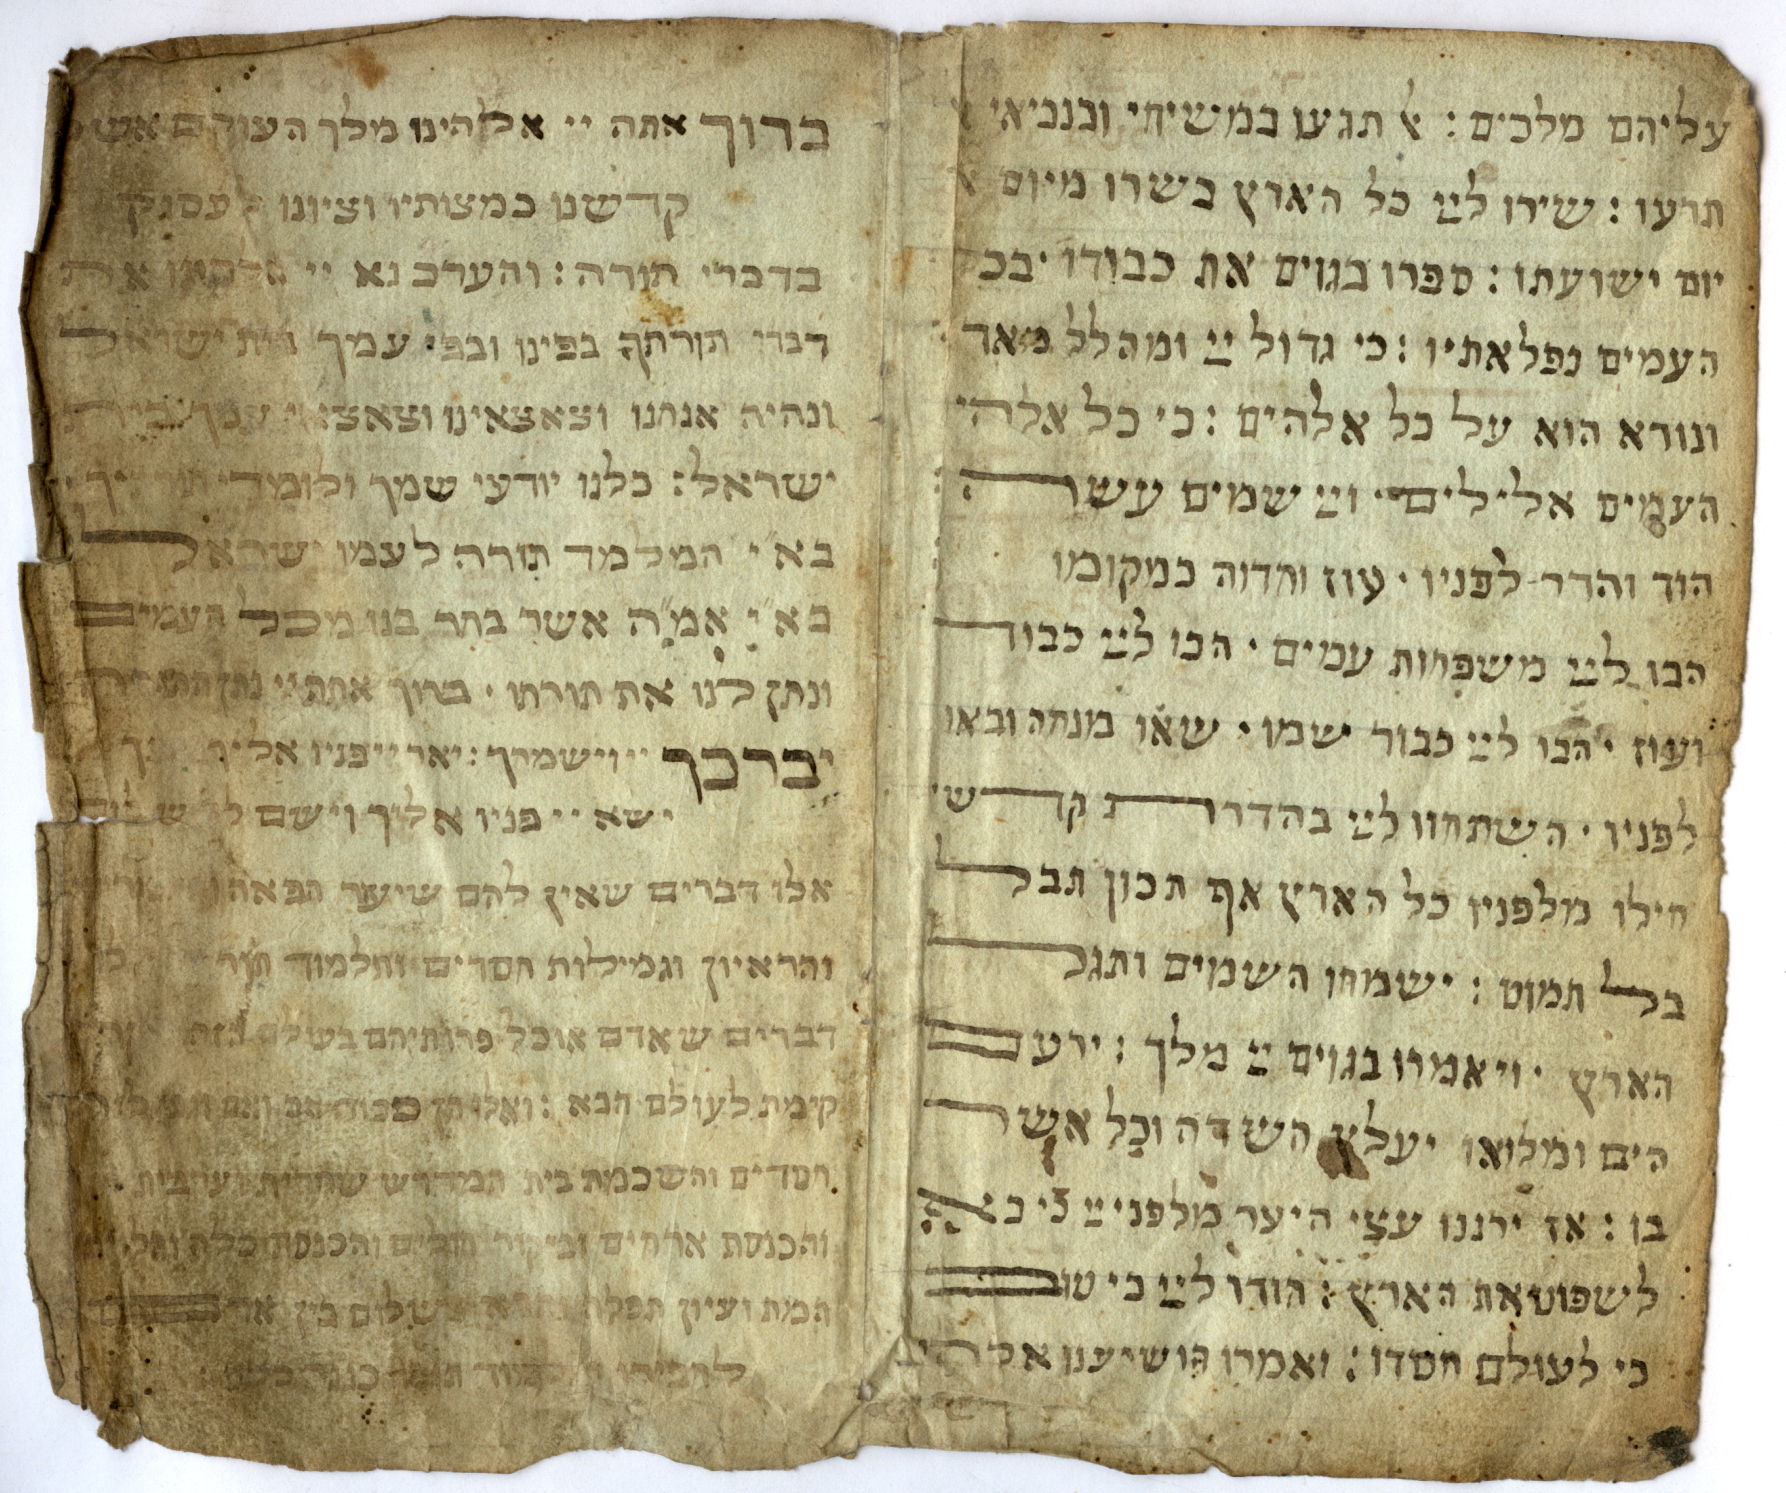 עליהם מלכים : אל תגעו במשיחי ובנביאי
תרעו : שירו לײ כל הארץ בשרו מיום
יום ישועתו : ספרו בגוים את כבודו · בכל
העמים נפלאתיו : כי גדול ײ ומהלל מאד
ונורא הוא על כל אלהים : כי כל אלהי
העמים אלילים · וײ שמים עשה
הוד והדר לפניו · עוז וחדוה במקומו
הבו לײ משפחות עמים · הבו לײ כבוד
ועוז · הבו לײ כבוד שמו · שאו מנחה ובאו
לפניו · השתחוו לײ בהדרת קדש
חילו מלפניו כל הארץ אף תכון תבל
בל תמוט : ישמחו השמים ותגל
הארץ · ויאמרו בגוים ײ מלך : ירעם
הים ומלואו יעלץ השדה וכל אשר
בו : אז ירננו עצי היער מלפני ײ כי בא
לשפוט את הארץ : הודו לײ כי טוב
כי לעולם חסדו : ואמרו הושיענו אלהי
ברוך אתה יי אלהינו מלך העולם אש
קדשנו במצותיו וציונו לעסוק
בדברי תורה : והערב נא יי אלהינו את
דברי תורתך בפינו ובפי עמך בית ישראל
ונהיה אנחנו וצאצאינו וצאצאי עמך בית
ישראל : כלנו יודעי שמך ולומדי תורתיך
בא״י המלמד תורה לעמו ישראל
בא״י אמ״ה אשר בחר בנו מכל העמים
ונתן לנו את תורתו · ברוך אתה יי נותן התורה
יברכך יי וישמרך : יאר יי פניו אליך
ישא יי פניו אליך וישם לך שלום
אלו דברים שאין להם שיעור הפאה
והראיון וגמילות חסדים ותלמוד תורה
דברים שאדם אוכל פרותיהם בעולם הזה
קימת לעולם הבא : ואלו הן כבוד אב ואם
חסדים והשכמת בית המדרש שחרית וערבית
והכנסת ארחים ובקור חולים והכנסת כלה
המת ועיון תפלה שלום בין אדם
לחבירו תורה כנגד כלם